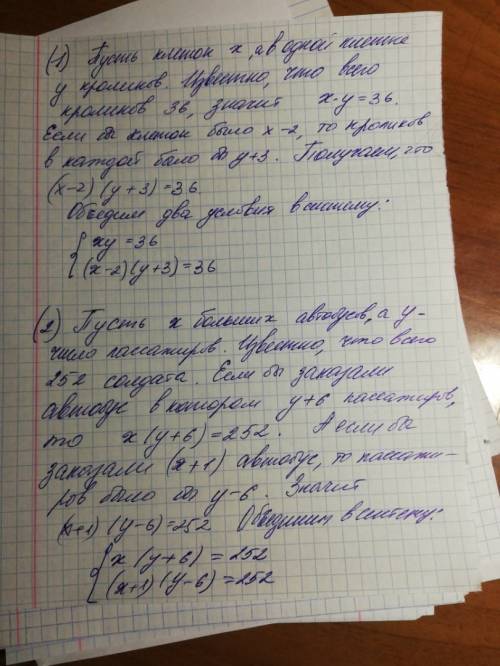 (1) Пусть клеток x, а в одной клетке
y кроликов. Известно, что всего
кроликов 36, значит x·y=36.
Если бы клеток было x-2, то кроликов
в каждой было бы y+3. Получаем, что
(x-2)(y+3)=36.
Объедим два условия в систему:
{ xy=36
(x-2)(y+3)=36
(2) Пусть x больших автобусов, а y-
число пассажиров. Известно, что всего
252 солдата. Если бы заказали
автобус в котором y+6 пассажиров,
то x(y+6)=252. А если бы
заказали (x+1) автобус, то пассажи-
ров было бы y-6. Значит
(x+1)(y-6)=252 Объединим в систему:
{ x(y+6)=252
(x+1)(y-6)=252